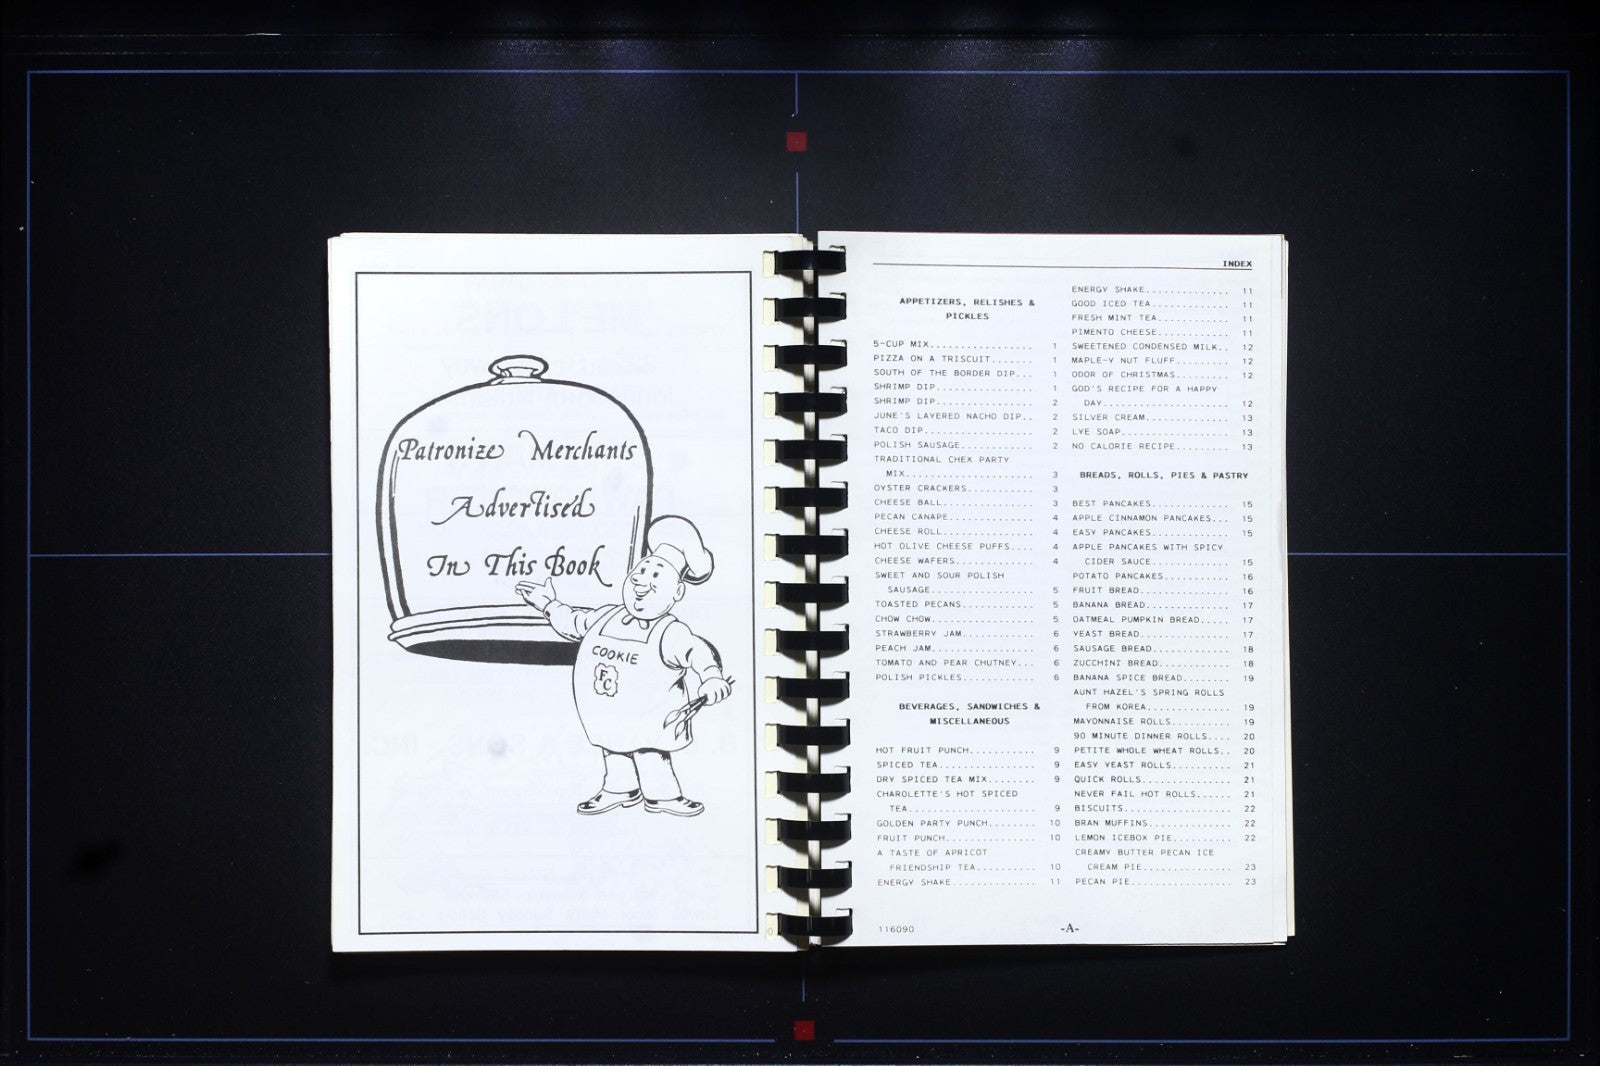 Patronize Merchants
Advertised
In This Book
COOKIE
FC
INDEX
APPETIZERS, RELISHES &
PICKLES
5-CUP MIX................. 1
PIZZA ON A TRISCUIT....... 1
SOUTH OF THE BORDER DIP... 1
SHRIMP DIP................ 1
SHRIMP DIP................ 2
JUNE'S LAYERED NACHO DIP.. 2
TACO DIP.................. 2
POLISH SAUSAGE............ 2
TRADITIONAL CHEX PARTY
MIX..................... 3
OYSTER CRACKERS........... 3
CHEESE BALL............... 3
PECAN CANAPE.............. 4
CHEESE ROLL............... 4
HOT OLIVE CHEESE PUFFS.... 4
CHEESE WAFERS............. 4
SWEET AND SOUR POLISH
SAUSAGE................. 5
TOASTED PECANS............ 5
CHOW CHOW................. 5
STRAWBERRY JAM............ 6
PEACH JAM................. 6
TOMATO AND PEAR CHUTNEY... 6
POLISH PICKLES............ 6
BEVERAGES, SANDWICHES &
MISCELLANEOUS
HOT FRUIT PUNCH........... 9
SPICED TEA................ 9
DRY SPICED TEA MIX........ 9
CHAROLETTE'S HOT SPICED
TEA..................... 9
GOLDEN PARTY PUNCH........ 10
FRUIT PUNCH............... 10
A TASTE OF APRICOT
FRIENDSHIP TEA.......... 10
ENERGY SHAKE.............. 11
ENERGY SHAKE.............. 11
GOOD ICED TEA............. 11
FRESH MINT TEA............ 11
PIMENTO CHEESE............ 11
SWEETENED CONDENSED MILK.. 12
MAPLE-Y NUT FLUFF......... 12
ODOR OF CHRISTMAS......... 12
GOD'S RECIPE FOR A HAPPY
DAY..................... 12
SILVER CREAM.............. 13
LYE SOAP.................. 13
NO CALORIE RECIPE......... 13
BREADS, ROLLS, PIES & PASTRY
BEST PANCAKES............. 15
APPLE CINNAMON PANCAKES... 15
EASY PANCAKES............. 15
APPLE PANCAKES WITH SPICY
CIDER SAUCE............. 15
POTATO PANCAKES........... 16
FRUIT BREAD............... 16
BANANA BREAD.............. 17
OATMEAL PUMPKIN BREAD..... 17
YEAST BREAD............... 17
SAUSAGE BREAD............. 18
ZUCCHINI BREAD............ 18
BANANA SPICE BREAD........ 19
AUNT HAZEL'S SPRING ROLLS
FROM KOREA.............. 19
MAYONNAISE ROLLS.......... 19
90 MINUTE DINNER ROLLS.... 20
PETITE WHOLE WHEAT ROLLS.. 20
EASY YEAST ROLLS.......... 21
QUICK ROLLS............... 21
NEVER FAIL HOT ROLLS...... 21
BISCUITS.................. 22
BRAN MUFFINS.............. 22
LEMON ICEBOX PIE.......... 22
CREAMY BUTTER PECAN ICE
CREAM PIE............... 23
PECAN PIE................. 23
116090
-A-